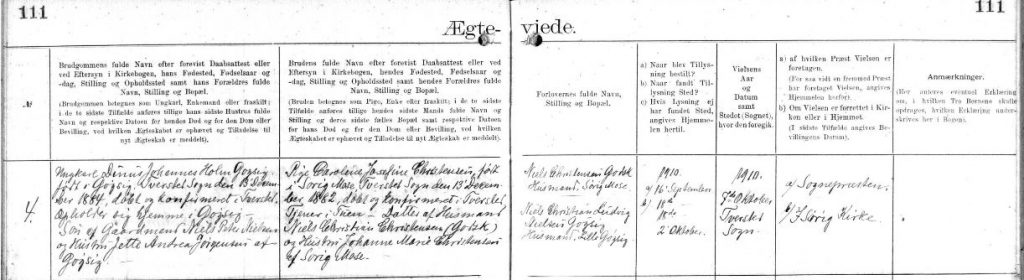 111
Ægte-
vjede.
111
№
Brudgommens fulde Navn efter forevist Daabsattest eller
ved Eftersyn i Kirkebogen, hans Fødested, Fødselsaar og
-dag, Stilling og Opholdssted samt hans Forældres fulde
Navn, Stilling og Bopæl.
(Brudgommen betegnes som Ungkarl, Enkemand eller fraskilt;
i de to sidste Tilfælde anføres tillige hans sidste Hustrus fulde
Navn og respektive Datoen for hendes Død og for den Dom eller
Bevilling, ved hvilken Ægteskabet er ophævet og Tilladelse til
nyt Ægteskab er meddelt).
Brudens fulde Navn efter forevist Daabsattest eller ved
Eftersyn i Kirkebogen, hendes Fødested, Fødselsaar og
-dag, Stilling og Opholdssted samt hendes Forældres fulde
Navn, Stilling og Bopæl.
(Bruden betegnes som Pige, Enke eller fraskilt; i de to sidste
Tilfælde anføres tillige hendes sidste Mands fulde Navn og
Stilling og deres sidste fælles Bopæl samt respektive Datoen
for hans Død og for den Dom eller Bevilling, ved hvilken
Ægteskabet er ophævet og Tilladelse til nyt Ægteskab er meddelt).
Forlovernes fulde Navn,
Stilling og Bopæl.
a) Naar blev Tillys-
ning bestilt?
b) Naar fandt Till-
lysning Sted?
c) Hvis Lysning ej
har fundet Sted,
angives Hjemme-
len hertil.
Vielsens
Aar
og
Datum
samt
Stedet (Sognet),
hvor den foregik.
a) af hvilken Præst Vielsen er
foretagen.
(For saa vidt en fremmed Præst
har foretaget Vielsen, angives
Hjemmelen herfor).
b) Om Vielsen er forrettet i Kirk-
ken eller i Hjemmet.
(I sidste Tilfælde angives
Bevillingens Datum).
Anmærkninger.
(Her anføres eventuel Erklæring
om, i hvilken Tro Børnene skulle
opdrages, hvilken Erklæring under-
skrives her i Bogen).
4.
Ungkarl Dinus Johannes Holm Gøgsig,
født i Gøgsig, Tverstet Sogn den 13 Decem-
ber 1884, døbt og konfirmeret i Tversted,
Opholder sig hjemme i Gøgsig -
Søn af Gaardmand Niels Peter Nielsen
og Hustru Jette Andrea Jørgensen af
Gøgsig.
Pige Caroline Josefine Christensen, født
i Sørig Mose Tverstet Sogn den 13 Decem-
ber 1882, døbt og konfirmeret i Tversted,
Tjener i Tuen - Datter af Husmand
Niels Christian Christensen (Gotsk)
og Hustru Johanne Marie Christensen
af Sørig Mose.
Niels Christensen Gotsk
Husmand, Sørig Mose.
Niels Christian Ludvig
Nielsen Gøgsig
Husmand, Lille Gøgsig
1910.
a) 16 September
b) 18de
2 Oktober.
1910.
7de Oktober
Tversted
Sogn.
a/ Sognepræsten.
b/ I Sørig Kirke.